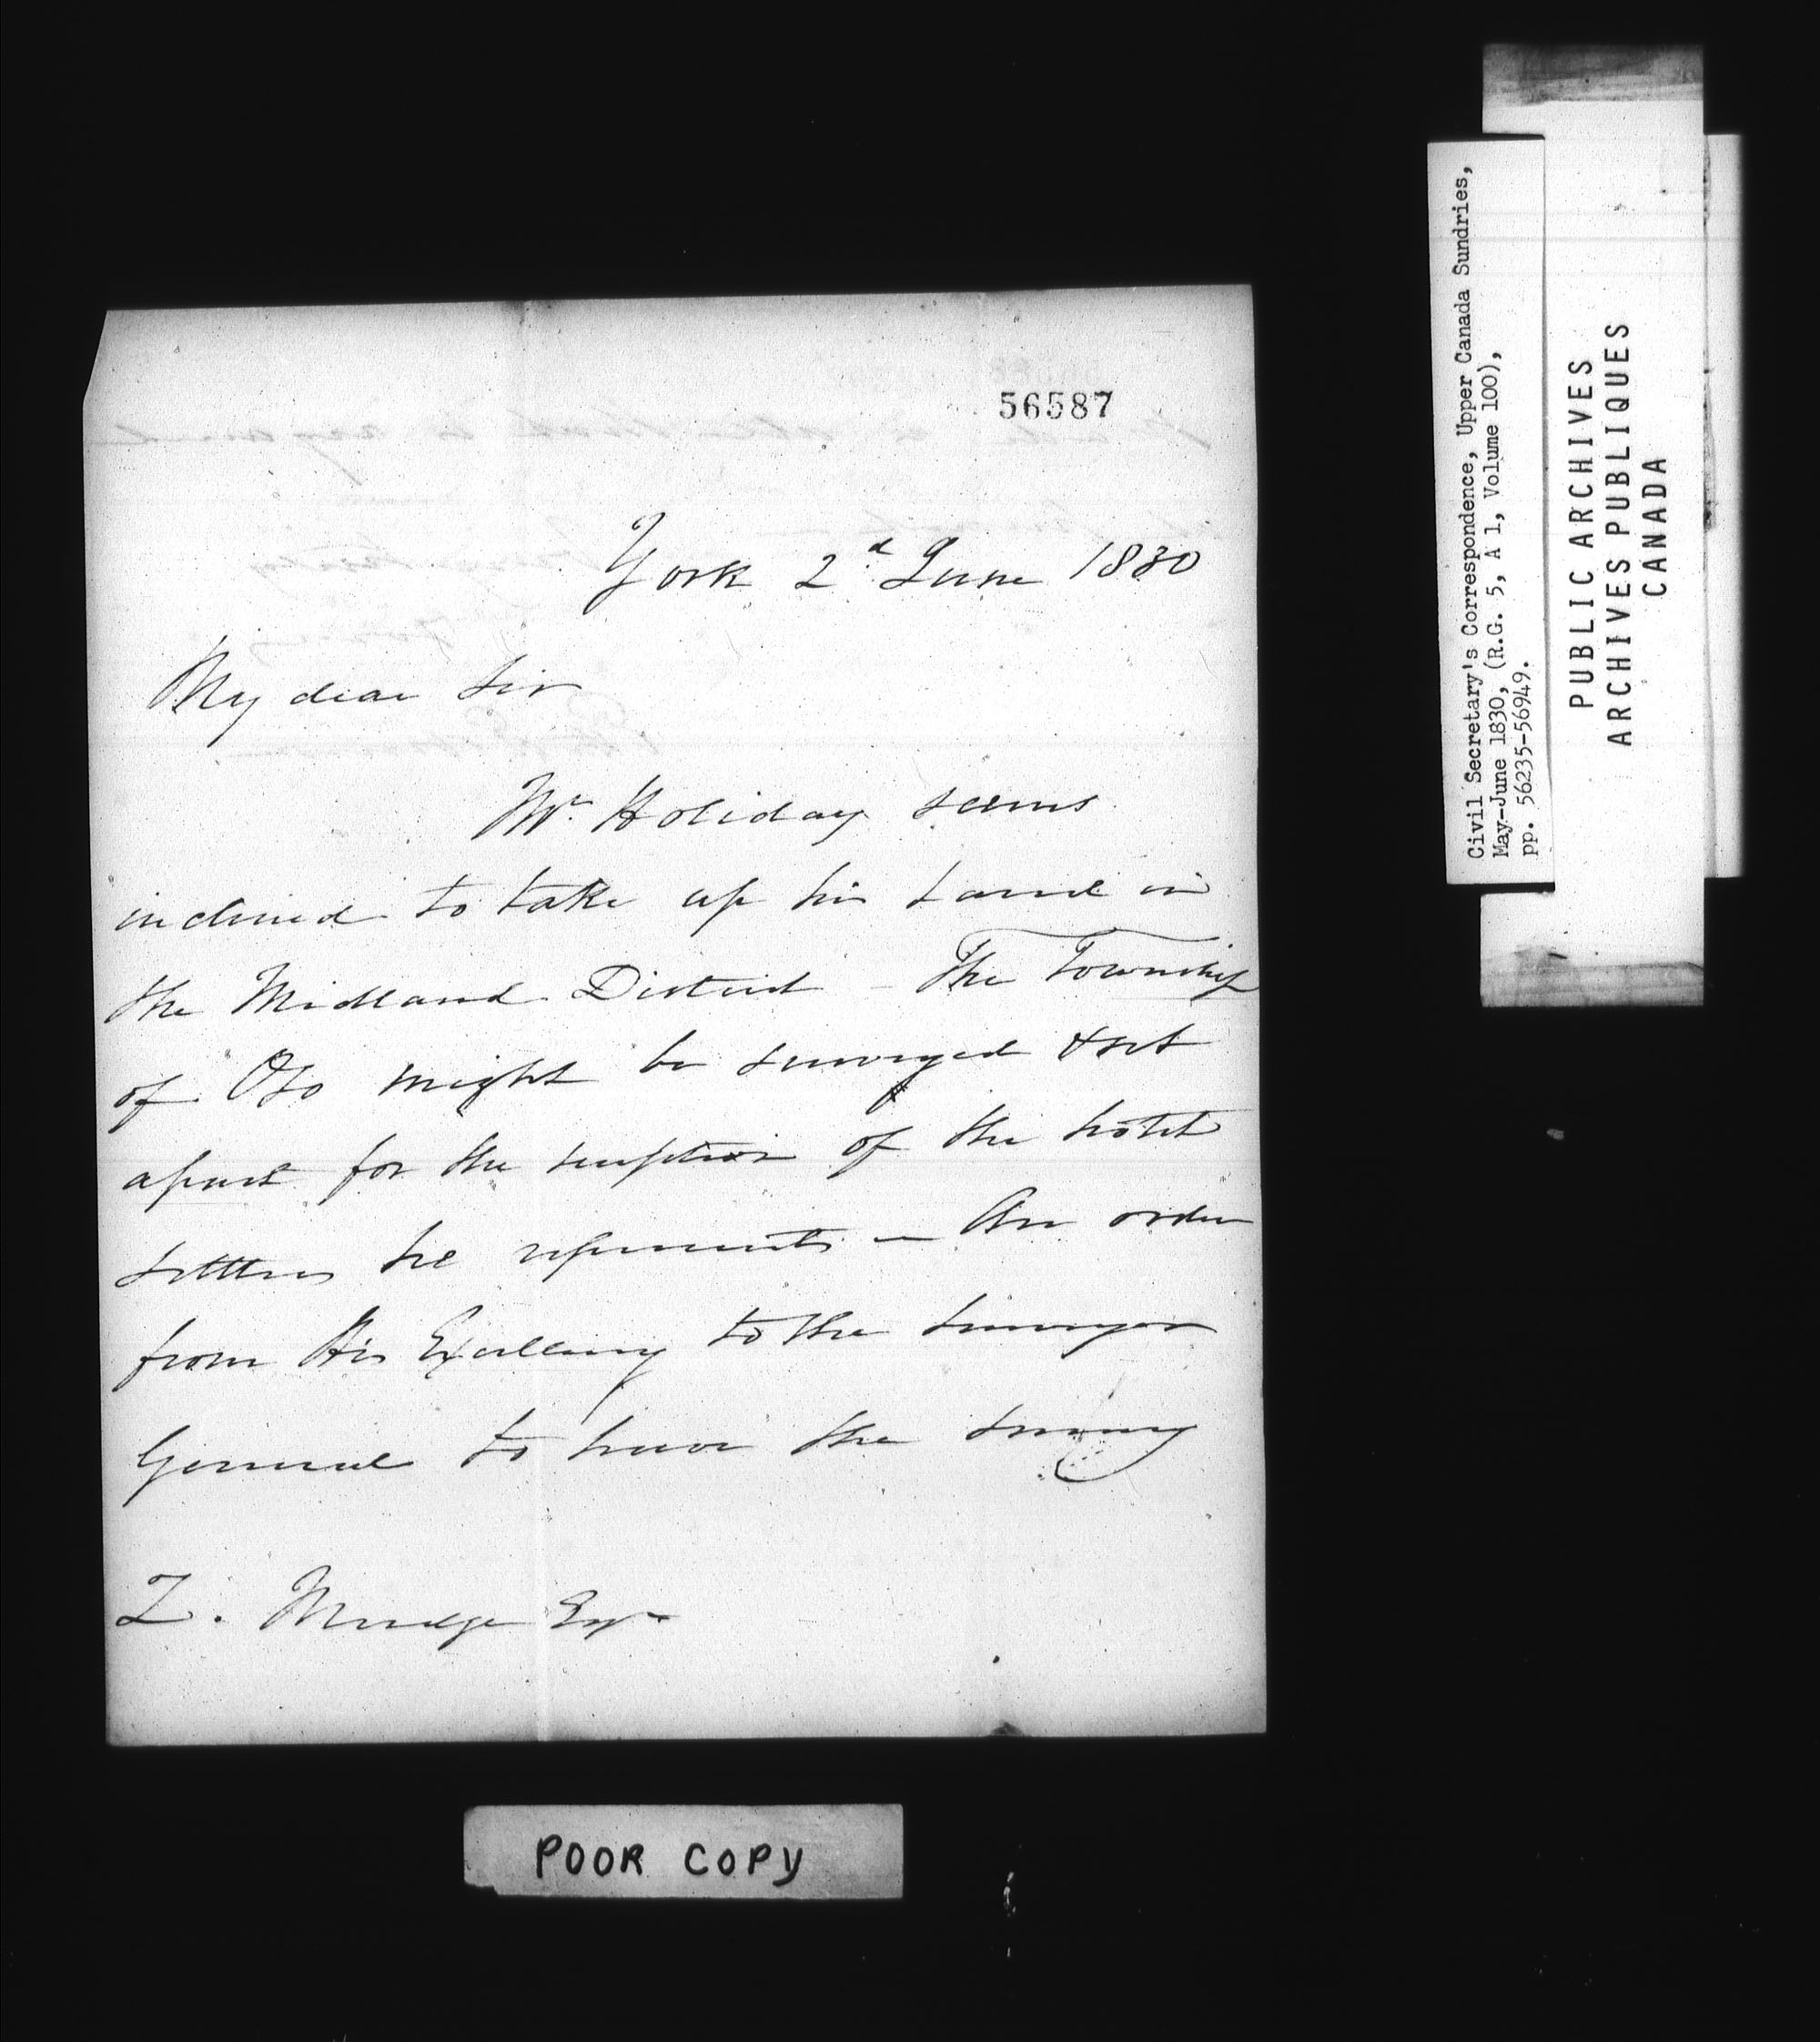 56587
York 2d June 1830
My dear Sir
Mr. Holiday seems
inclined to take up his Land in
the Midland District – The Township
of Oso might be surveyed & set
apart for the reception of the
settlers he represents – An order
from His Excellency to the Surveyor
General to have the survey
Z. Mudge Esqr
POOR COPY
Civil Secretary's Correspondence, Upper Canada Sundries,
May-June 1830, (R.G. 5, A 1, Volume 100),
pp. 56235-56949.
PUBLIC ARCHIVES
ARCHIVES PUBLIQUES
CANADA